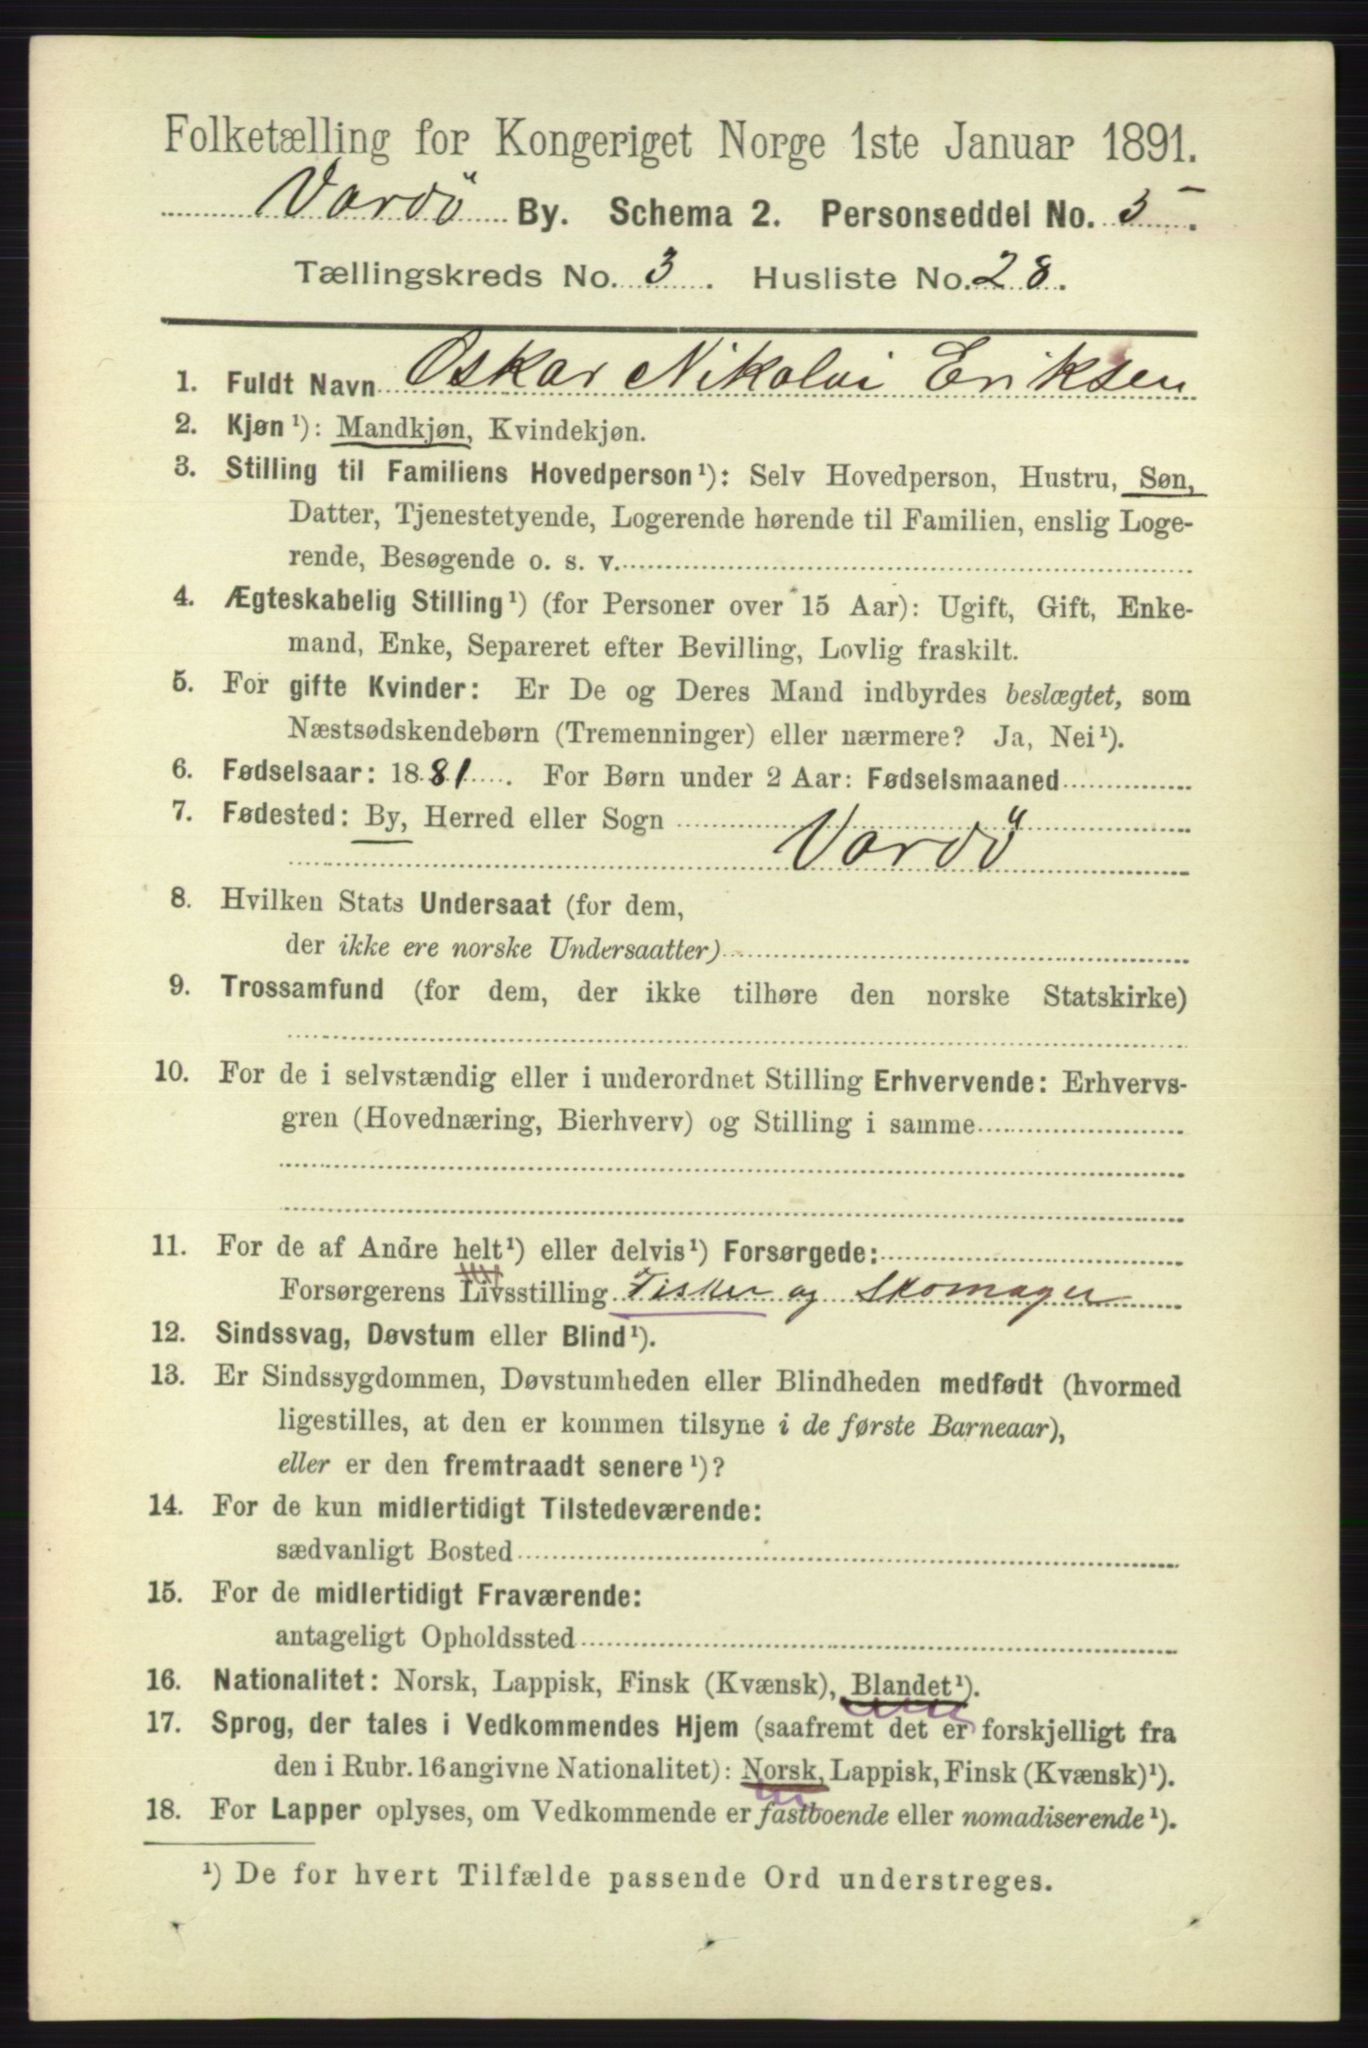 Folketælling for Kongeriget Norge 1ste Januar 1891.
Vardö By. Schema 2. Personseddel No. 5.
Tællingskreds No. 3. Husliste No. 28.
1. Fuldt Navn Oskar Nikolai Eriksen
2. Kjøn¹): Mandkjøn, Kvindekjøn.
3. Stilling til Familiens Hovedperson¹): Selv Hovedperson, Hustru, Søn,
Datter, Tjenestetyende, Logerende hørende til Familien, enslig Loge-
rende, Besøgende o. s. v.
4. Ægteskabelig Stilling¹) (for Personer over 15 Aar): Ugift, Gift, Enke-
mand, Enke, Separeret efter Bevilling, Lovlig fraskilt.
5. For gifte Kvinder: Er De og Deres Mand indbyrdes beslægtet, som
Næstsødskendebørn (Tremenninger) eller nærmere? Ja, Nei¹).
6. Fødselsaar: 1881. For Børn under 2 Aar: Fødselsmaaned
7. Fødested: By, Herred eller Sogn
Vardö
8. Hvilken Stats Undersaat (for dem,
der ikke ere norske Undersaatter)
9. Trossamfund (for dem, der ikke tilhøre den norske Statskirke)
10. For de i selvstændig eller i underordnet Stilling Erhvervende: Erhvervs-
gren (Hovednæring, Bierhverv) og Stilling i samme
11. For de af Andre helt¹) eller delvis¹) Forsørgede:
Forsørgerens Livsstilling Fisker og Skomager
12. Sindssvag, Døvstum eller Blind¹).
13. Er Sindssygdommen, Døvstumheden eller Blindheden medfødt (hvormed
ligestilles, at den er kommen tilsyne i de første Barneaar),
eller er den fremtraadt senere¹)?
14. For de kun midlertidigt Tilstedeværende:
sædvanligt Bosted
15. For de midlertidigt Fraværende:
antageligt Opholdssted
16. Nationalitet: Norsk, Lappisk, Finsk (Kvænsk), Blandet¹).
17. Sprog, der tales i Vedkommendes Hjem (saafremt det er forskjelligt fra
den i Rubr. 16 angivne Nationalitet): Norsk, Lappisk, Finsk (Kvænsk)¹).
18. For Lapper oplyses, om Vedkommende er fastboende eller nomadiserende¹).
¹) De for hvert Tilfælde passende Ord understreges.